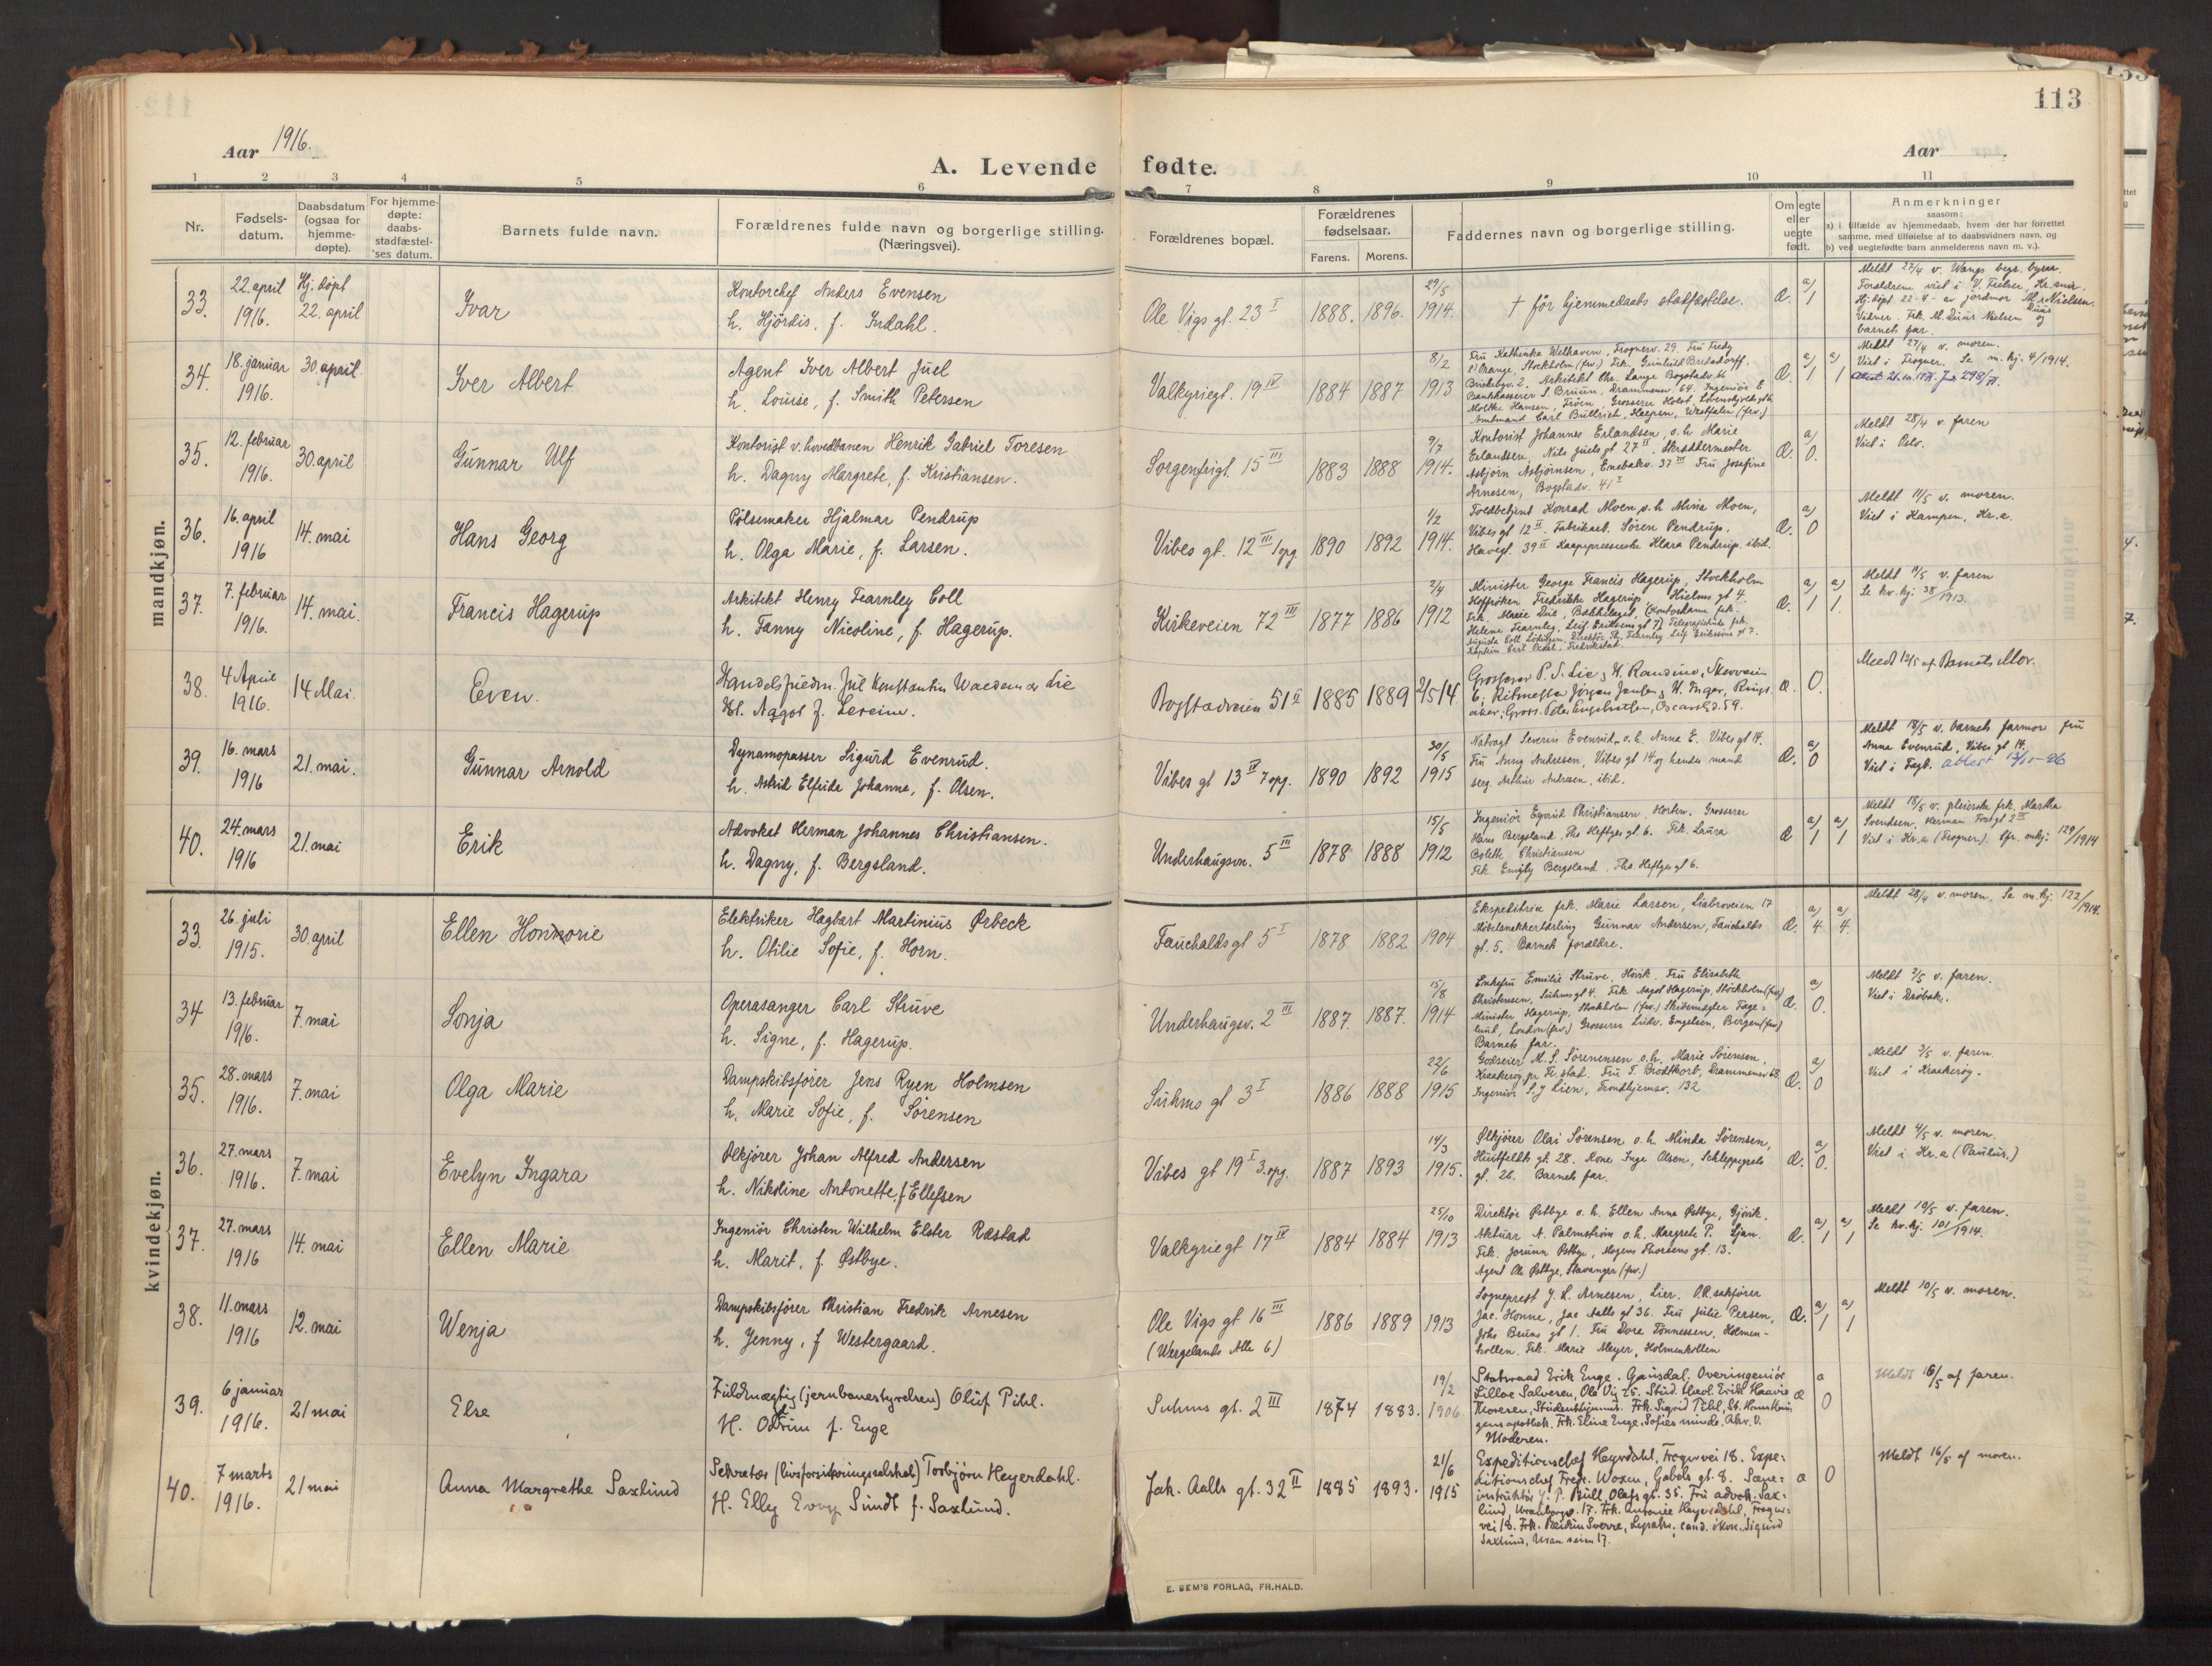 113
Aar 1916.
A. Levende fødte.
Aar
1 2 3 4 5 6 7 8 9 10 11
Nr.
Fødsels-
datum.
Daabsdatum
(ogsaa for
hjemme-
døpte).
For hjemme-
døpte:
daabs-
stadfæstel-
ses datum.
Barnets fulde navn.
Forældrenes fulde navn og borgerlige stilling.
(Næringsvei).
Forældrenes bopæl.
Forældrenes
fødselsaar.
Farens. Morens.
Faddernes navn og borgerlige stilling.
Om egte
eller
uegte
født.
Anmerkninger
saasom:
a) i tilfælde av hjemmedaab, hvem der har forrettet
samme, med tilføielse af to daabsvidners navn, og
b) ved uegtefødte barn anmelderens navn m. v.).
mandkjøn.
33.
22. april
1916.
Hj. døpt
22. april
Ivar
Kontorchef Anders Evensen
h. Hjördis, f. Indahl.
Ole Vigs gt. 23 I
1888. 1896.
29/5
1914.
† før hjemmedaabs stadfestelse.
Æ.
a/
1
Meldt 27/4 v. Wangs begr. byraa.
Hj. døpt 22-4- av jordmor M. Nielsen.
barnets far.
34.
18. januar
1916.
30. april.
Iver Albert
Agent Iver Albert Juel
h. Louise, f. Smith Petersen
Valkyriegt. 19 IV
1884 1887
8/2
1913
Fru Kathinka Welhaven, Trognerv. 29. Fru Fredy
d'Orange, Stockholm (frv.) Frk. Gunhild Bredsdorff.
Briskebyv. 2. Arkitekt Chr. Lange Bogstadv. 66
Bankkasserer S. Bruun, Drammensv. 64. Ingeniør E
Moltke Hansen, Frøen, Grosserer Holst,
Amtmand Carl Büllrich, Haspen, Westfalen (frv.)
Æ.
a/ a/
1 1
Meldt 27/4 v. moren.
Viet i Trogner. Se m. kj. 4/1914.
35.
12. februar
1916.
30. april
Gunnar Ulf
Kontorist v. hovedbanen Henrik Gabriel Toresen
h. Dagny Margrete, f. Kristiansen.
Sorgenfrigt. 15 III
1883 1888
9/7
1914.
Kontorist Johannes Erlandsen, o. h. Marie
Erlandsen, Nils Juels gt 27 II. Skræddermester
Asbjørn Asbjørnsen, Enebakv. 37 III Fru Josefine
Arnesen, Bogstadv. 41 I
Æ.
a/
0.
Meldt 28/4 v. faren
Viet i Oslo.
36.
16. april
1916
14. mai
Hans Georg
Pølsemaker Hjalmar Pendrup
h. Olga Marie, f. Larsen.
Vibes gt. 12 III 1 opg
1890 1892
1/2
1914.
Toldbetjent Konrad Moen, o. h. Mina Moen,
Vibes gt 12 II. Fabrikarb. Søren Pendrup,
Havegt. 39 II Kaapepresserske Klara Pendrup, ibid.
Æ.
a/
0
Meldt 11/5 v. moren.
Viet i Kampen, Kr.a.
37.
7. februar
1916.
14. mai.
Francis Hagerup
Arkitekt Henry Fearnley Coll
h. Fanny Nicoline, f. Hagerup.
Kirkeveien 72 III
1877 1886
2/4
1912
Minister George Francis Hagerup, Stockholm
Hoffrøken Fredrikke Hagerup Hielms gt 4.
Frk. Marie Due, Bækkelaget, (Kontordame frk.
Helene Fearnley, Leif Eriksens gt 7) Telegrafistinde frk.
Augusta Coll, Lødingen, Direktør Th. Fearnley Leif Erikssons gt 7.
Kaptein Carl Oxdal, Fredrikstad.
Æ.
a/ a/
1 1.
Meldt 11/5 v. faren
Se kv. kj. 38/1913.
38.
4 April
1916.
14 Mai.
Even.
Handelsfuldm. Jul Konstantin Waldemar Lie
H. Aagot f.
Bogstadveien 51 II
1885 1889 2/5 14
Æ.
0.
Meldt 12/5 af Barnets Mor.
39.
16. mars
1916
21. mai.
Gunnar Arnold
Dynamopasser Sigurd Evenrud.
h. Astrid Elfrida Johanne, f. Olsen.
Vibes gt 13 IV 7 opg.
1890 1892
30/5
1915
Natvagt Severin Evenrud o. h. Anna E. Vibes gt 14.
Fru Anny Andresen, Vibes gt 14 og hendes mand
seeg. Arthur Andresen, ibid.
Æ.
a/
0
Meldt 18/5 v. barnets farmor fru
Anna Evenrud, Vibes gt 14.
Viet i Fagb. attest 13/11-26
40.
24. mars
1916
21. mai
Erik
Advokat Herman Johannes Christiansen.
h. Dagny, f. Bergsland.
Underhaugsvn. 5 III
1878 1888
15/5
1912
Ingeniør Eyvind Christiansen, Horten. Grosserer
Hans Bergsland. Ths Heftyes gt. 6. Frk. Laura
Colette Christiansen
Frk. Emily Bergsland. Ths. Heftyes gt 6.
Æ
a/ a/
1 1
Meldt 18/5 v. pleierske frk. Martha
Svendsen, Herman Fossgt 2 III
Viet i Kr.a (Trogner). Cfr. mkj. 129/1914
kvindekjøn.
33.
26. juli
1915.
30. april
Ellen Honnorie
Elektriker Hagbart Martinius Ørbeck
h. Otilie Sofie, f. Horn.
Fauchaldsgt 5 I
1878 1882 1904
Ekspeditrice frk. Marie Larsen, Liabroveien 17
Møbelsnekkerlærling Gunnar Andersen, Fauchalds
gt. 5. Barnets forældre.
Æ.
a/ a/
4 4.
Meldt 28/4 v. moren. Se m. kj. 122/1914.
34
13. februar
1916.
7. mai
Sonja
Operasanger Carl Struve
h. Signe, f. Hagerup.
Underhaugsv. 2 III
1887. 1887.
15/8
1914
Enkefru Emilie Struve, Høvik. Fru Elisabeth
Christensen, Suhms gt 4. Frk Aagot Hagerup, Stockholm (frv)
Minister Hagerup, Stockholm (frv.) Skibsmægler Fage-
lund, London (frv.) Grosserer Ludv. Engelsen, Bergen (frv)
Barnets far.
Æ.
a/
0.
Meldt 2/5 v. faren.
Viet i Drøbak.
35.
28. mars
1916.
7. mai
Olga Marie
Dampskibsfører Jens Ryen Holmsen
h. Marie Sofie, f. Sørensen
Suhms gt 3 I
1886 1888
22/6
1915
Godseier M. S. Sørensen o. h. Marie Sørensen,
Kraakerøy pr Fr. stad. Fru T. Brodtkorb, Drammensv 68.
Ingeniør S. J Lien, Trondhjemsv. 132
Æ.
a/
0
Meldt 3/5 v. faren.
Viet i Kraakerøy.
36.
27. mars
1916.
7. mai
Evelyn Ingara
Ølkjører Johan Alfred Andersen
h. Nikoline Antonette, f Ellefsen
Vibes gt 19 I 3. opg.
1887 1893
14/3
1915.
Ølkjører Olai Sørensen o. h. Minda Sørensen,
Huitfeldts gt. 28. Kone Inga Olsen, Schleppegrels
gt. 26. Barnets far.
Æ.
a/
0.
Meldt 4/5 v. moren.
Viet i Kr.a (Paulus.)
37.
27. mars
1916
14. mai
Ellen Marie
Ingeniør Christen Wilhelm Elster Ræstad
h. Marit, f. Østbye.
Valkyriegt 17 IV
1884 1884
25/10
1913
Direktør Østbye o. h. Ellen Anna Østbye, Gjøvik.
Aktuar A. Palmstrøm o. h. Margrete P. Ljan.
Frk. Jorunn Østbye, Mogens Thorsens gt. 13.
Agent Ole Østbye, Stavanger (frv.)
Æ.
a/ a/
1 1
Meldt 10/5 v. faren.
Se kv. kj. 101/1914.
38.
11. mars
1916
12. mai
Wenja
Dampskibsfører Christian Fredrik Arnesen
h. Jenny, f Westergaard.
Ole Vigs gt 16 III
(Wergelands Alle 6)
1886 1889 1913
Sogneprest J. L. Arnesen, Lier. O.R.sakfører
Jac. Honne, Jac Aalls gt 36. Fru Julie Persen,
Johs Bruns gt 1. Fru Dora Tønnessen, Holmen-
kollen. Frk. Marie Meyer, Holmenkollen
Æ.
a/ a/
1 1
Meldt 10/5 v. moren.
39.
6 januar
1916.
21 mai
Else
Fuldmægtig (jernbanestyrelsen) Oluf Pihl.
H. f. Enge
Suhms gt. 2 III
1874 1883.
19/2
1906
Statsraad Erik Enge. Gausdal. Overingeniør
Lilloe Salvesen, Ole Vig 25. Stud. theol. Erik Haavie
Thoresen, Studenthjemmet. Frk. Sigrid Pihl, St. Hanshau
gens apothek. Frk. Eline Enge, Sofies minde, Akv. V.
Moderen.
æ
a
0
Meldt 16/5 af faren.
40.
7 marts
1916.
21 mai
Anna Margrethe Saxlund
Sekretær (livsforsikringsselskab) Torbjørn Heyerdahl.
H. Elly Evvy Sundt f. Saxlund.
Jak. Aalls gt. 32 II
1885 1893.
21/6
1915
Expeditionschef Heyerdahl, Frognervei 18. Expe-
ditionschef Fredr. Woxen, Gabels gt. 8. Sane-
instruktør J. P. Bull, Olafs gt. 35. Fru advok. Sax-
lund, Uranborgv. 17. Frk. Antonie Heyerdahl, Frogner-
vei 18. Frk. Sverre, cand. økon. Sigurd
Saxlund, 17.
æ
0
Meldt 16/5 af moren.
E. SEM'S FORLAG, FR.HALD.